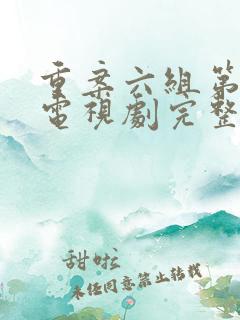 重案六組第
電視劇完整
甜啦
未经同意禁止转载